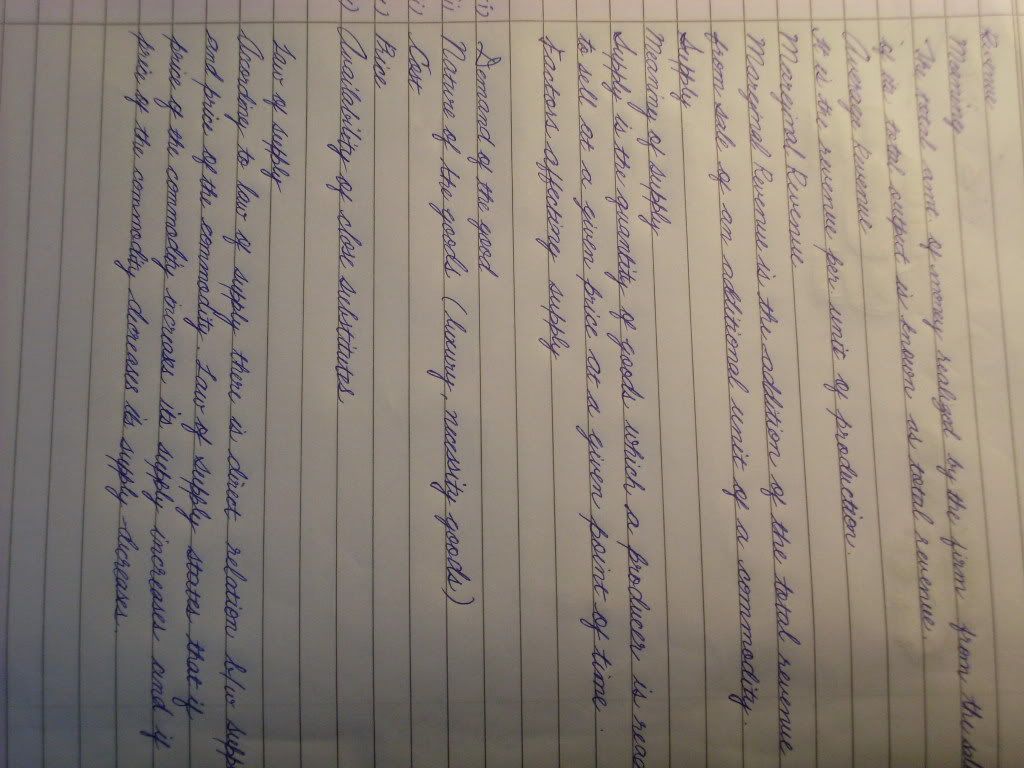 Revenue
Meaning
The total amt of money realized by the firm from the sal
of its total output is known as total revenue.
Average Revenue
It is the revenue per unit of production.
Marginal Revenue
Marginal Revenue is the addition of the total revenue
from sale of an additional unit of a commodity.
Supply
Meaning of supply
Supply is the quantity of goods which a producer is rea
to sell at a given price at a given point of time.
Factors affecting supply
Demand of the good
Nature of the goods (luxury, necessity goods)
Cost
Price
Availability of close substitutes
Law of supply
According to law of supply there is direct relation b/w supp
and price of the commodity. Law of supply states that if
price of the commodity increases its supply increases and if
price of the commodity decreases its supply decreases.